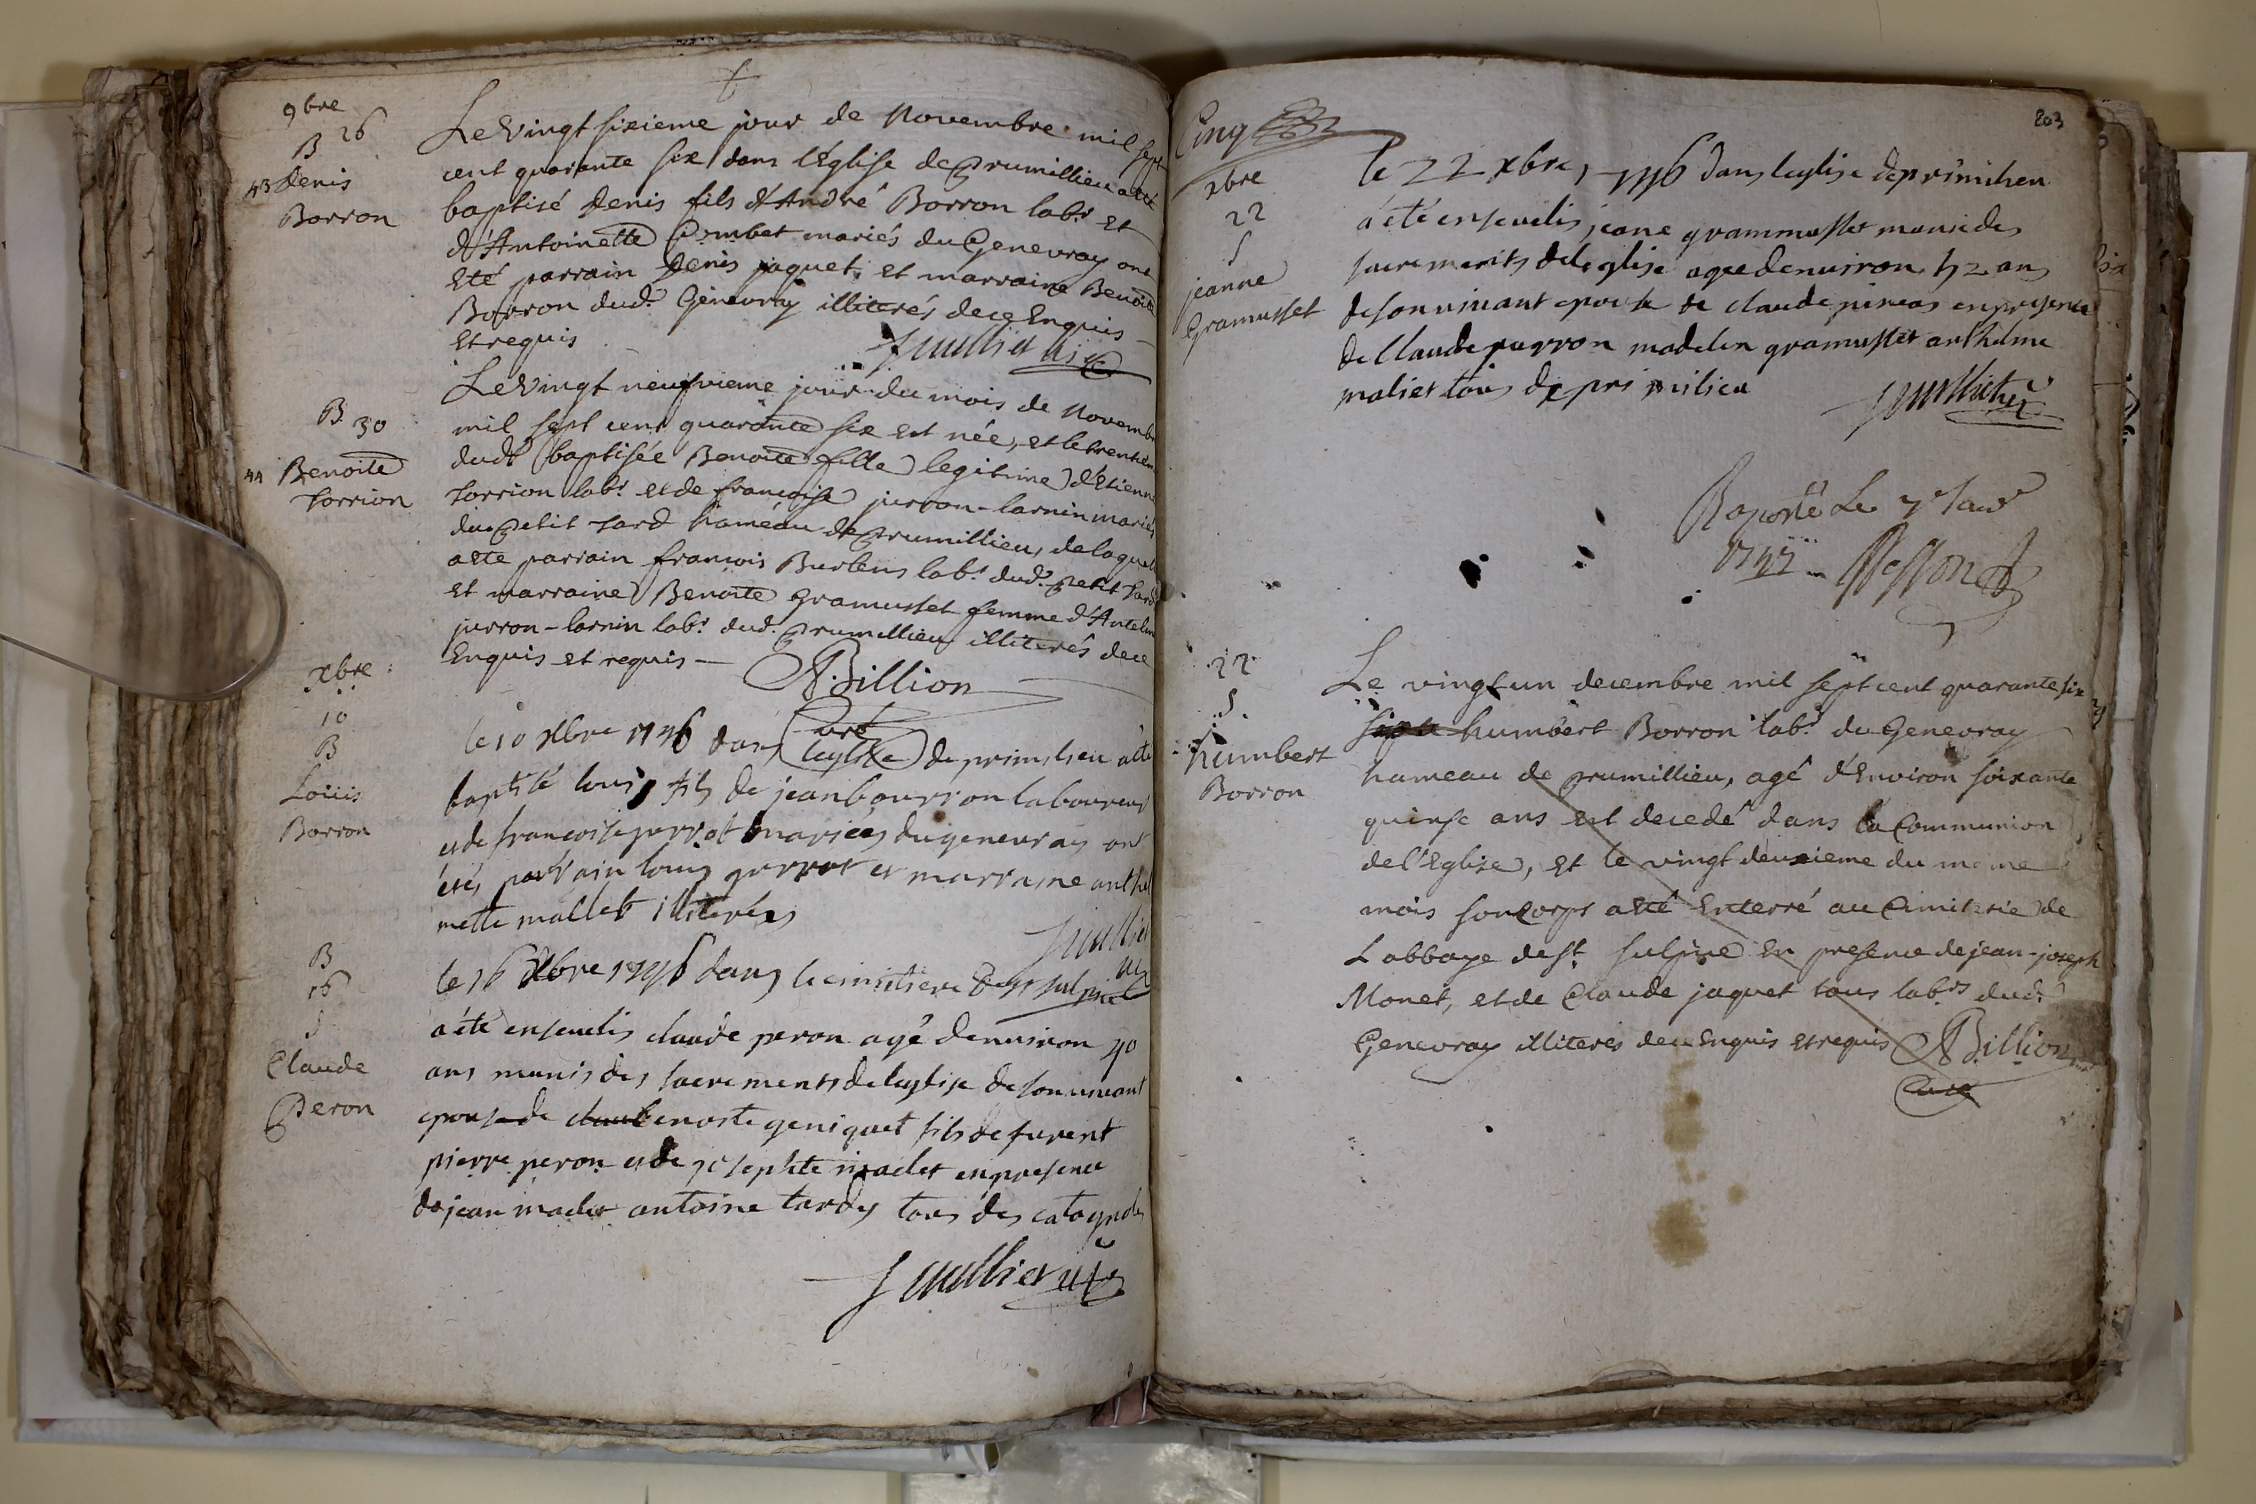 9bre
B 26
43 Denis
Borron
Le Vingt sixieme jour de Novembre mil sept
cent quarante six dans l'Eglise de Prumillieu a eté
baptisé Denis fils d'André Borron labr. et
d'Antoinette Combet mariés du Genevray ont
Eté parrain Denis jaquet, et marraine Benoite
Borron dud. Genevray illiterés de ce Enquis
et requis
B. 30
44 Benoite
Torrion
Le Vingt neufvieme jour du mois de Novembre
mil sept cent quarante six est née, et le trentieme
dudt baptisée Benoite fille legitime d'Etienne
Torrion labr. et de françoise jurron-larnin mariés
du Petit Tard haméau de Prumillieu, de laquelle
a été parrain francois labr. dud. petit Tard
et marraine Benoite Gramusset femme d'Antelme
jurron-larnin labr. dud. Prumillieu illiterés de ce
Enquis et requis — A. Billion
Curé
xbre
10
B
Loüis
Borron
le 10 Xbre 1746 dans leglise de primilieu a ete
baptisé louis fils de jean bourron laboureur
et de francoise perrot mariées du genevray ont
étés parrain louis perrot et marraine anthel
mette mallet illiterées
B
16
S
Claude
Peron
le 16 Xbre 1746 dans le cimitiere de st sulpice
a été ensevelis claude peron agé denuiron 40
ans munis des sacrements de leglise de son uiuant
epouse de benoite geniquet fils de furent
pierre peron et de josephte maclet en presence
de jean maclet antoine tardy tous des catagnoles
Cinq
203
xbre
22
S
jeanne
Gramusset
le 22 xbre, 1746 dans leglise de primilieu
a été enseuelis jeane grammusset munie des
sacrements de leglise agee denuiron 42 ans
de son uiuant epouse de claude pineas en presence
de Claude purron madelen gramusset anthelme
maliet tous de primilieu
Raporté Le 7e Janv
1747
22
S.
humbert
Borron
Le vingt un decembre mil sept cent quarante six
humbert Borron labr. du Genevray
hameau de prumillieu, agé d'Environ soixante
quinse ans est decedé dans la Communion
de l'Eglise, et le vingt deuxieme du meme
mois son corps a eté Enterré au Cimiterie de
L'abbaye de st. sulpice En presence de jean-joseph
Monet, et de Claude jaquet tous labrs dud.
Genevray illiterés de ce Enquis et requis A Billion
Curé